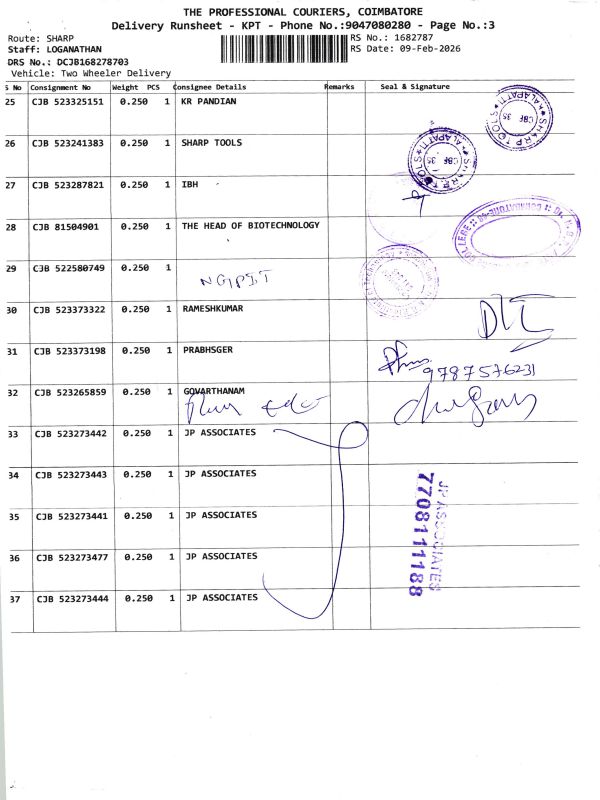 THE PROFESSIONAL COURIERS, COIMBATORE
Delivery Runsheet - KPT - Phone No.:9047080280 - Page No.:3
Route: SHARP RS No.: 1682787
Staff: LOGANATHAN RS Date: 09-Feb-2026
DRS No.: DCJB168278703
Vehicle: Two Wheeler Delivery
S No Consignment No Weight PCS Consignee Details Remarks Seal & Signature
25 CJB 523325151 0.250 1 KR PANDIAN
SHARP TOOLS
CBF 35
26 CJB 523241383 0.250 1 SHARP TOOLS
SHARP TOOLS
CBF 35
27 CJB 523287821 0.250 1 IBH
28 CJB 81504901 0.250 1 THE HEAD OF BIOTECHNOLOGY
COLLEGE
29 CJB 522580749 0.250 1
NGPIT
30 CJB 523373322 0.250 1 RAMESHKUMAR
31 CJB 523373198 0.250 1 PRABHSGER
9787576231
32 CJB 523265859 0.250 1 GOVARTHANAM
33 CJB 523273442 0.250 1 JP ASSOCIATES
34 CJB 523273443 0.250 1 JP ASSOCIATES
35 CJB 523273441 0.250 1 JP ASSOCIATES
36 CJB 523273477 0.250 1 JP ASSOCIATES
37 CJB 523273444 0.250 1 JP ASSOCIATES
JP ASSOCIATES
7708111188